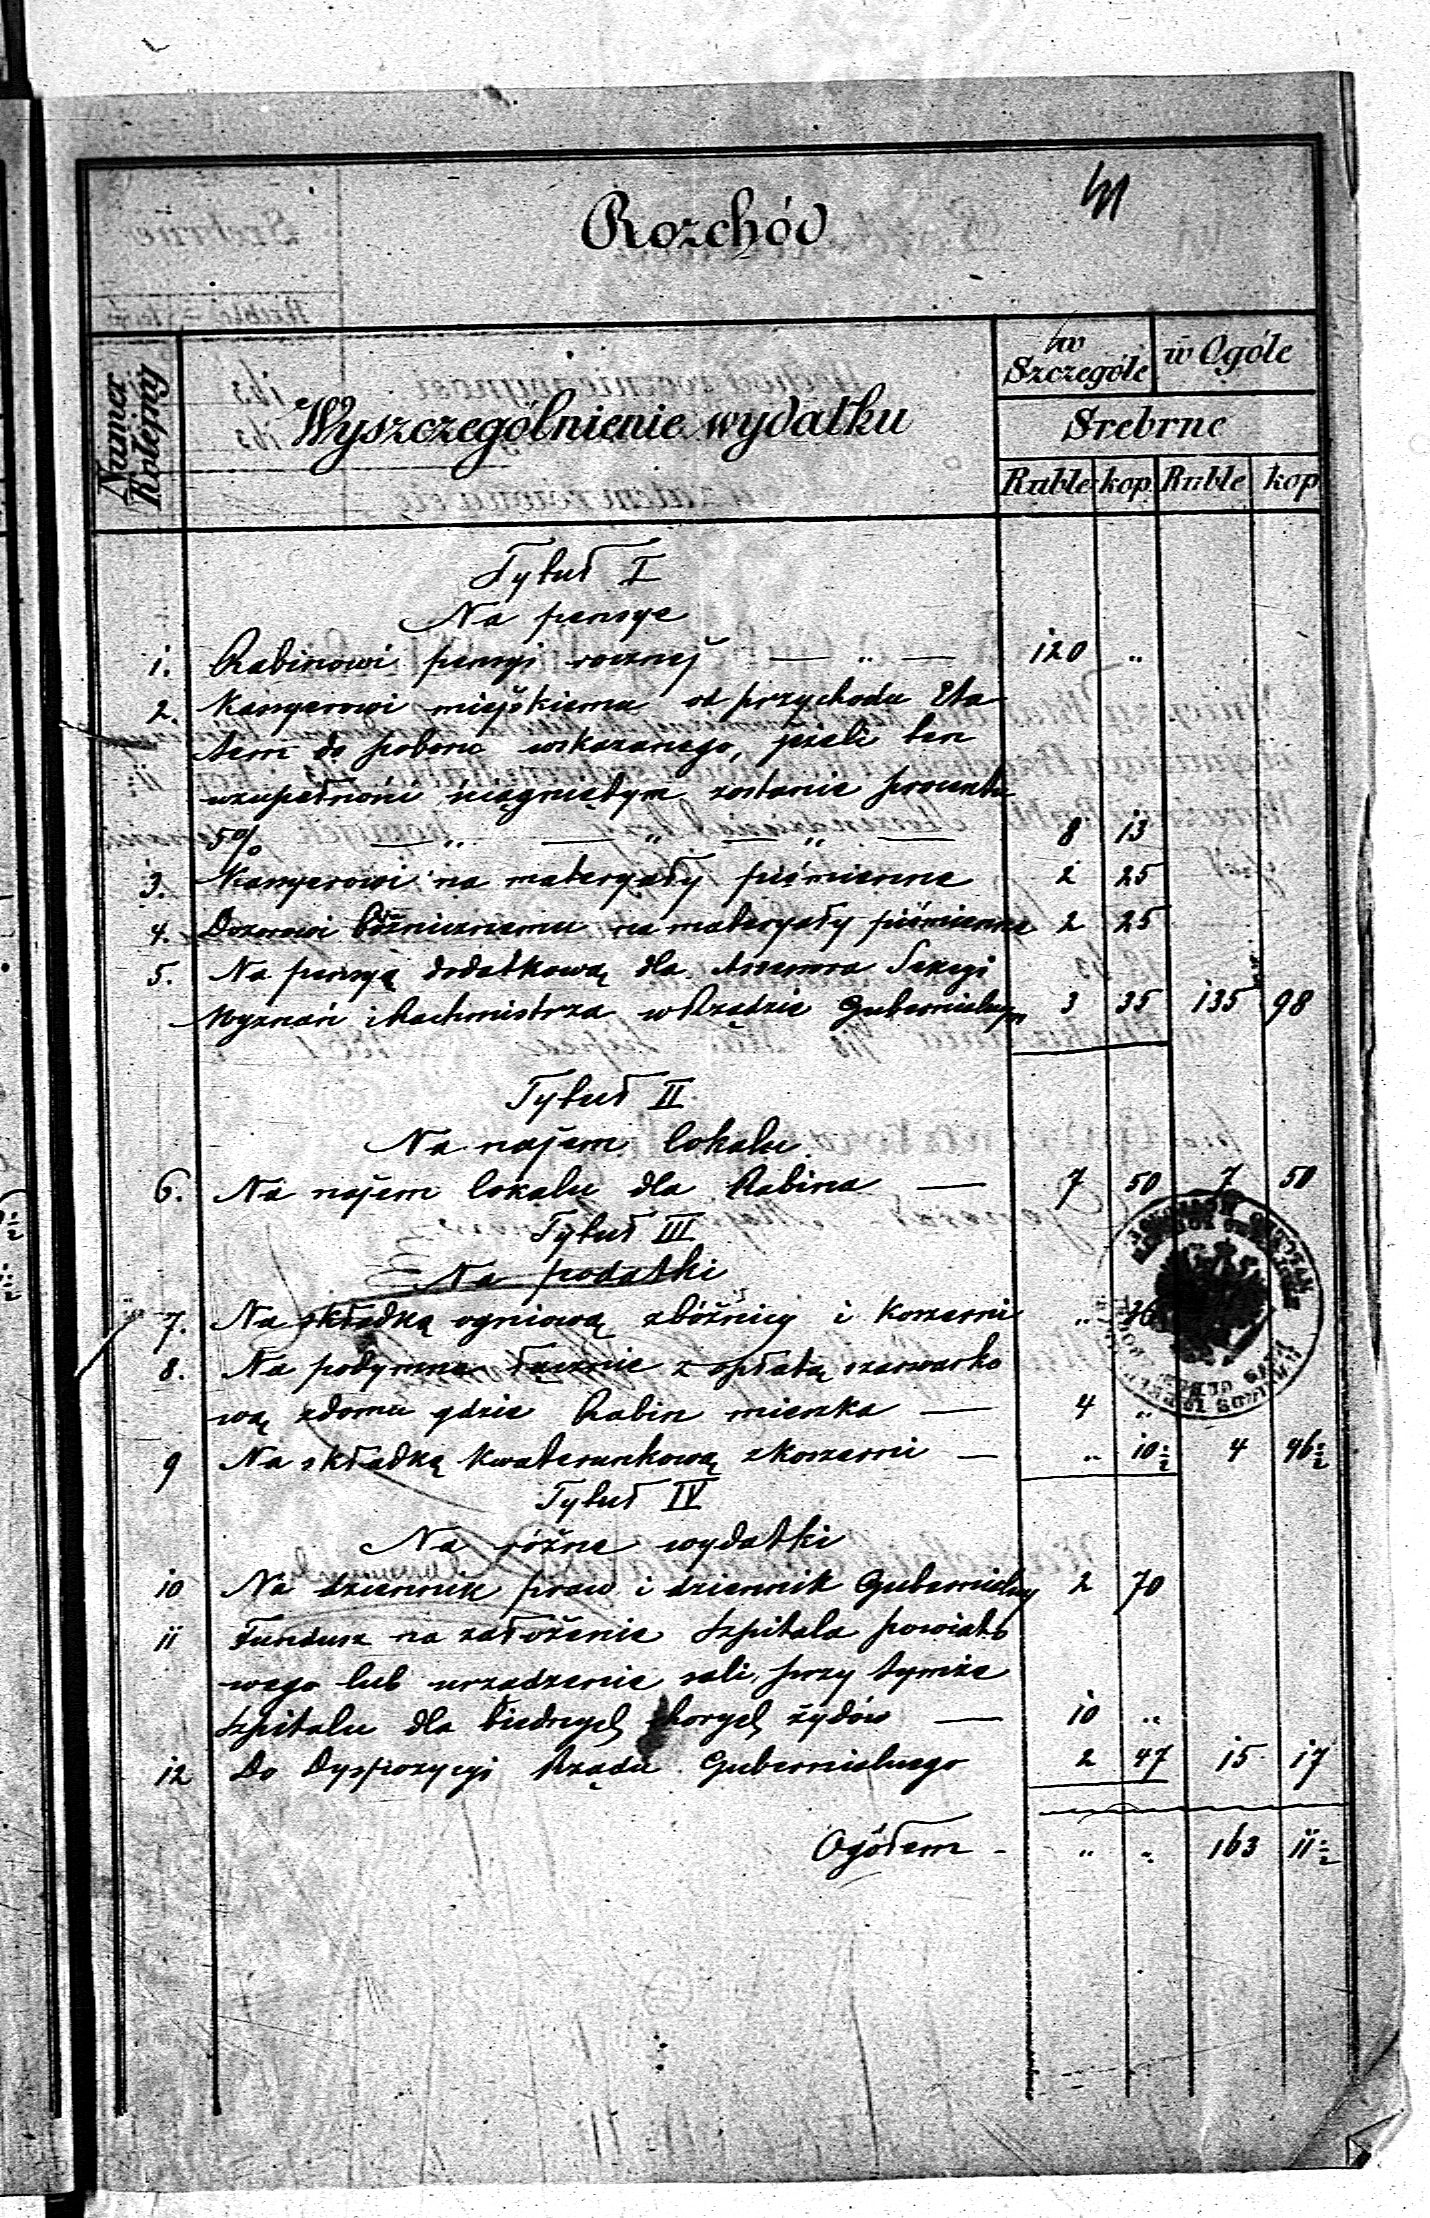 41
Rozchód
Numer Kolejny
Wyszczególnienie wydatku
w Szczególe
w Ogóle
Srebrne
Ruble kop Ruble kop
Tytuł I
Na pensye
1. Rabinowi pensyi rocznej — „ — 120 „
2. Kassyerowi miejskiemu od przychodu Eta
tem do poboru wskazanego, jeżeli ten
uzupełności ściągniętym zostanie procentu
5% — „ — „ — „ — 8 13
3. Kassyerowi na materyały piśmienne 2 25
4. Dozorowi bóżnicznemu na materyały piśmienne 2 25
5. Na pensyą dodatkową dla Assessora Sekcyi
Wyznań i Rachmistrza w Rządzie Gubernialnym 3 35 135 98
Tytuł II
Na najem lokalu
6. Na najem lokalu dla Rabina — 7 50 7 50
Tytuł III
Na podatki
7. Na składkę ogniową z bóżnicy i koszerni „ 36
8. Na podymne łącznie z opłatą szarwarko
wą z domu gdzie Rabin mieszka — 4 „
9 Na składkę kwaterunkową z koszerni — „ 10½ 4 46½
Tytuł IV
Na różne wydatki
10 Na dziennik praw i dziennik Gubernialny 2 70
11 Fundusz na założenie Szpitala powiato
wego lub urządzenie sali przy tymże
Szpitalu dla biednych chorych żydów — 10 „
12 Do Dyspozycyi Rządu Gubernialnego 2 47 15 17
Ogółem - „ „ 163 11½